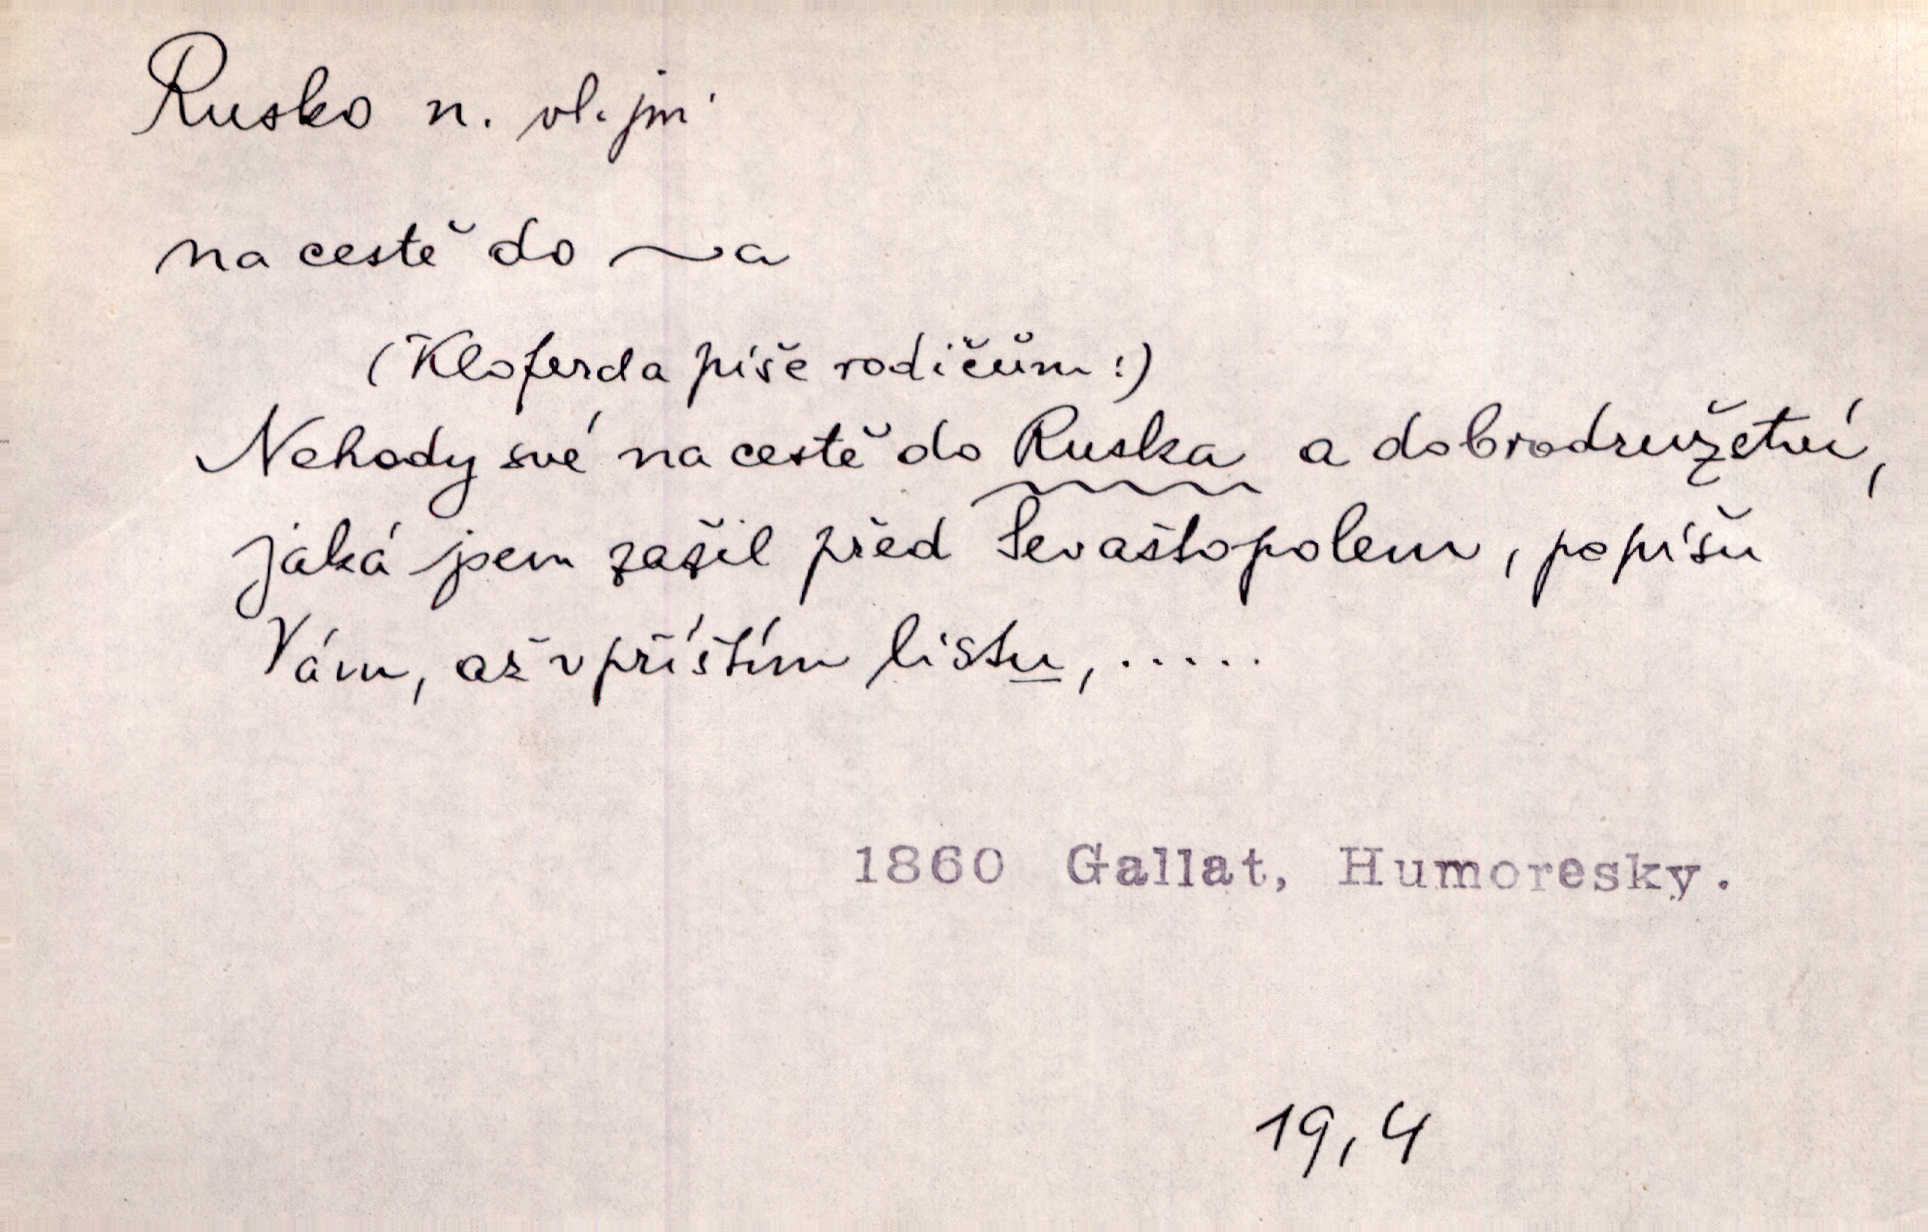 Rusko n. vl. jm.
na cestě do ~a
(Kloferda píše rodičům:)
Nehody své na cestě do Ruska a dobrodružství,
jaká jsem zažil před Sevaštopolem, popíšu
Vám, až v příštím listu, .....
1860 Gallat, Humoresky.
19,4